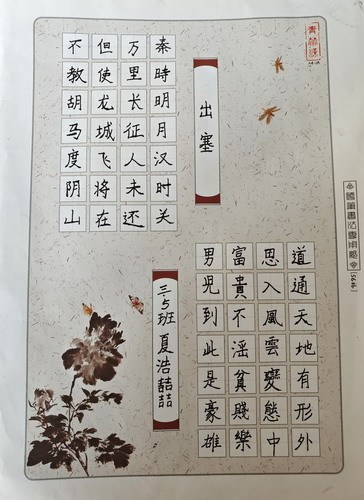 出塞
秦時明月汉时关
万里长征人未还
但使龙城飞将在
不教胡马度阴山
道通天地有形外
思入風雲變態中
富貴不淫貧賤樂
男児到此是豪雄
三.5班 夏浩喆